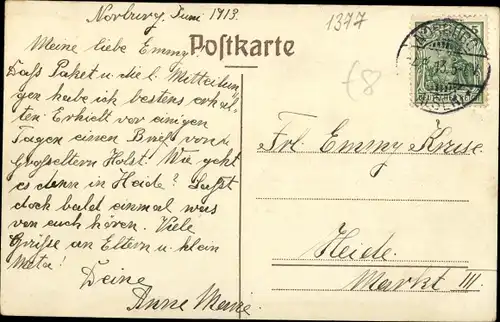 Norburg, Juni 1913.
1377
Meine liebe Emmy!
Postkarte
Dass Paket u. die l. Mitteilun-
gen habe ich bestens erhal-
ten. Erhielt vor einigen
Tagen einen Brief von
Großeltern Holst. Wie geht
es denn in Heide? Lasst
doch bald einmal was
von euch hören. Viele
Grüsse an Eltern u. klein
Meta!
Deine
Anne Marie.
Frl. Emmy Kruse
Heide.
Markt III.